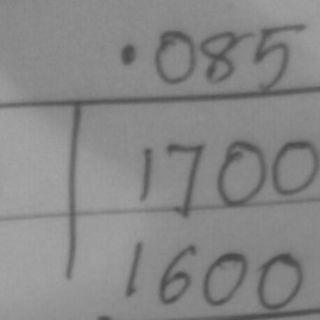 .085
1700
1600